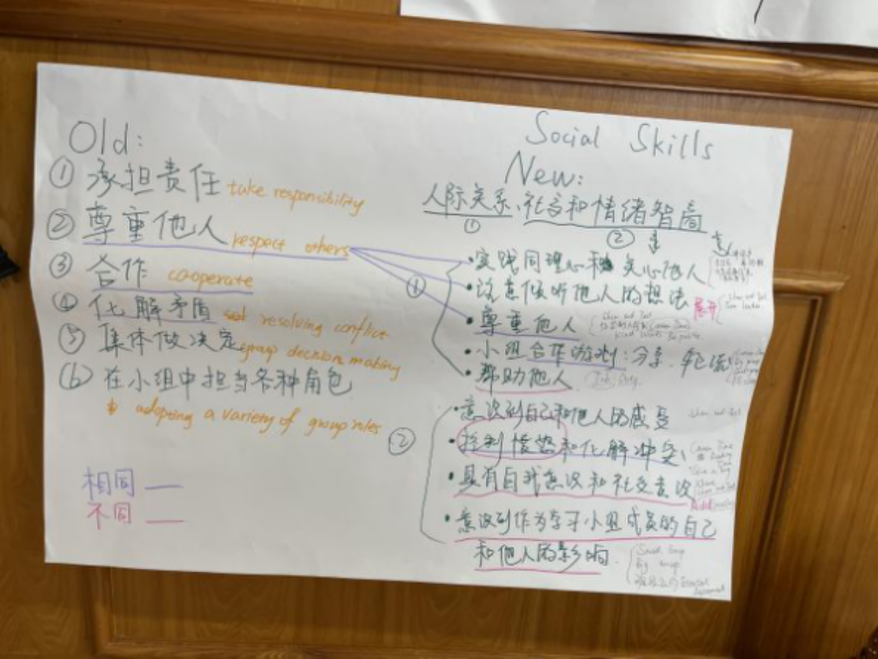 Old:
① 承担责任 take responsibility
② 尊重他人 respect others
③ 合作 cooperate
④ 化解矛盾 resolving conflict
⑤ 集体做决定 group decision making
⑥ 在小组中担当各种角色
adopting a variety of group roles
相同
不同
Social Skills
New:
人际关系、社交和情绪智商
① ②
①
·实践同理心和关心他人
·注意倾听他人的想法 展开
·尊重他人
·小组合作游戏:分享、轮流
·帮助他人
②
·意识到自己和他人的感受
·控制愤怒和化解冲突
·具有自我意识和社交意识
·意识到作为学习小组成员的自己
和他人的影响.